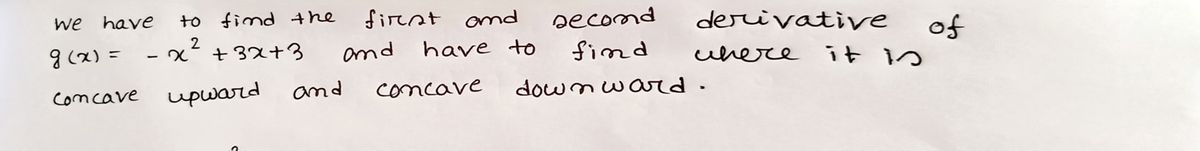 we have to find the first and second derivative of
g(x) = - x² + 3x+3 and have to find where it is
concave upward and concave downward.